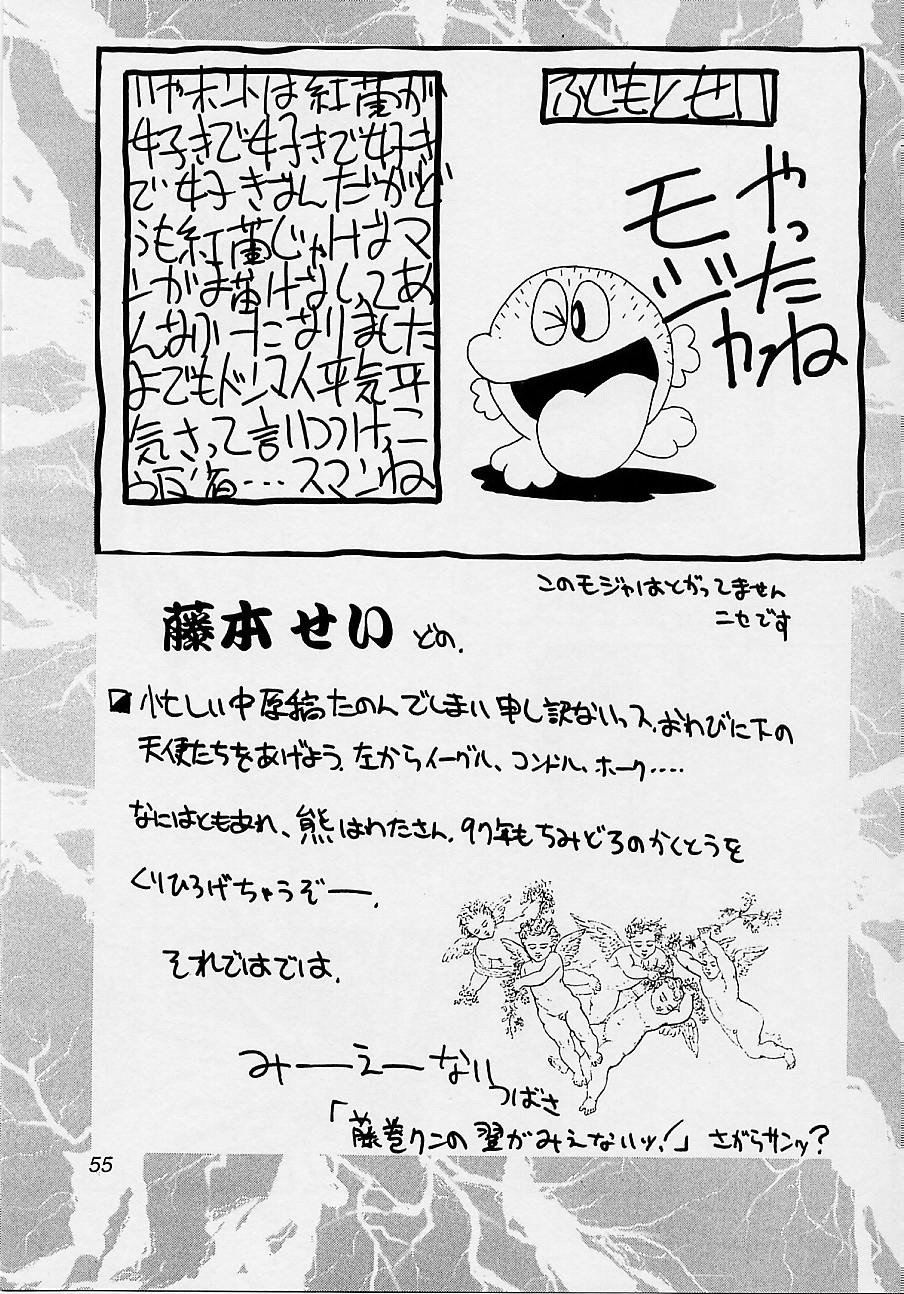 ふじもとせい
やったね
モジャ
いやホントは紅蘭が
好きで好きで好き
で好きなんだがど
うも紅蘭じゃげばマ
ンガお蘭げなしってあ
んなふーになりました
よでもドンマイ平気平
気さって言いつつけっこ
う反省…スマンね
このモジャはとがってません
ニセです
藤本せい どの.
忙しい中原稿たのんでしまい申し訳ないっス.おわびに下の
天使たちをあげよう.左からイーグル、コンドル、ホーク・・・・
なにはともあれ、熊はわたさん.97年もちみどろのかくとうを
くりひろげちゃうぞー.
それではでは.
みーえーない
つばさ
「藤巻クンの翼がみえないッ!」さがらサンッ?
55